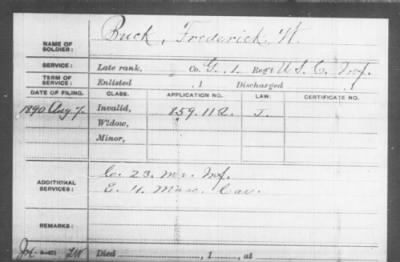 NAME OF SOLDIER: Buck, Frederick W.
SERVICE: Late rank, Co. G. 1 Reg't U S. C. Inf.
TERM OF SERVICE: Enlisted , 1 Discharged , 1
DATE OF FILING. CLASS. APPLICATION NO. LAW. CERTIFICATE NO.
1890 Aug 7. Invalid, 859.112. J.
Widow,
Minor,
ADDITIONAL SERVICES: Co. 23. Me. Inf.
4 Mass. Cav.
REMARKS:
Died , 1 , at